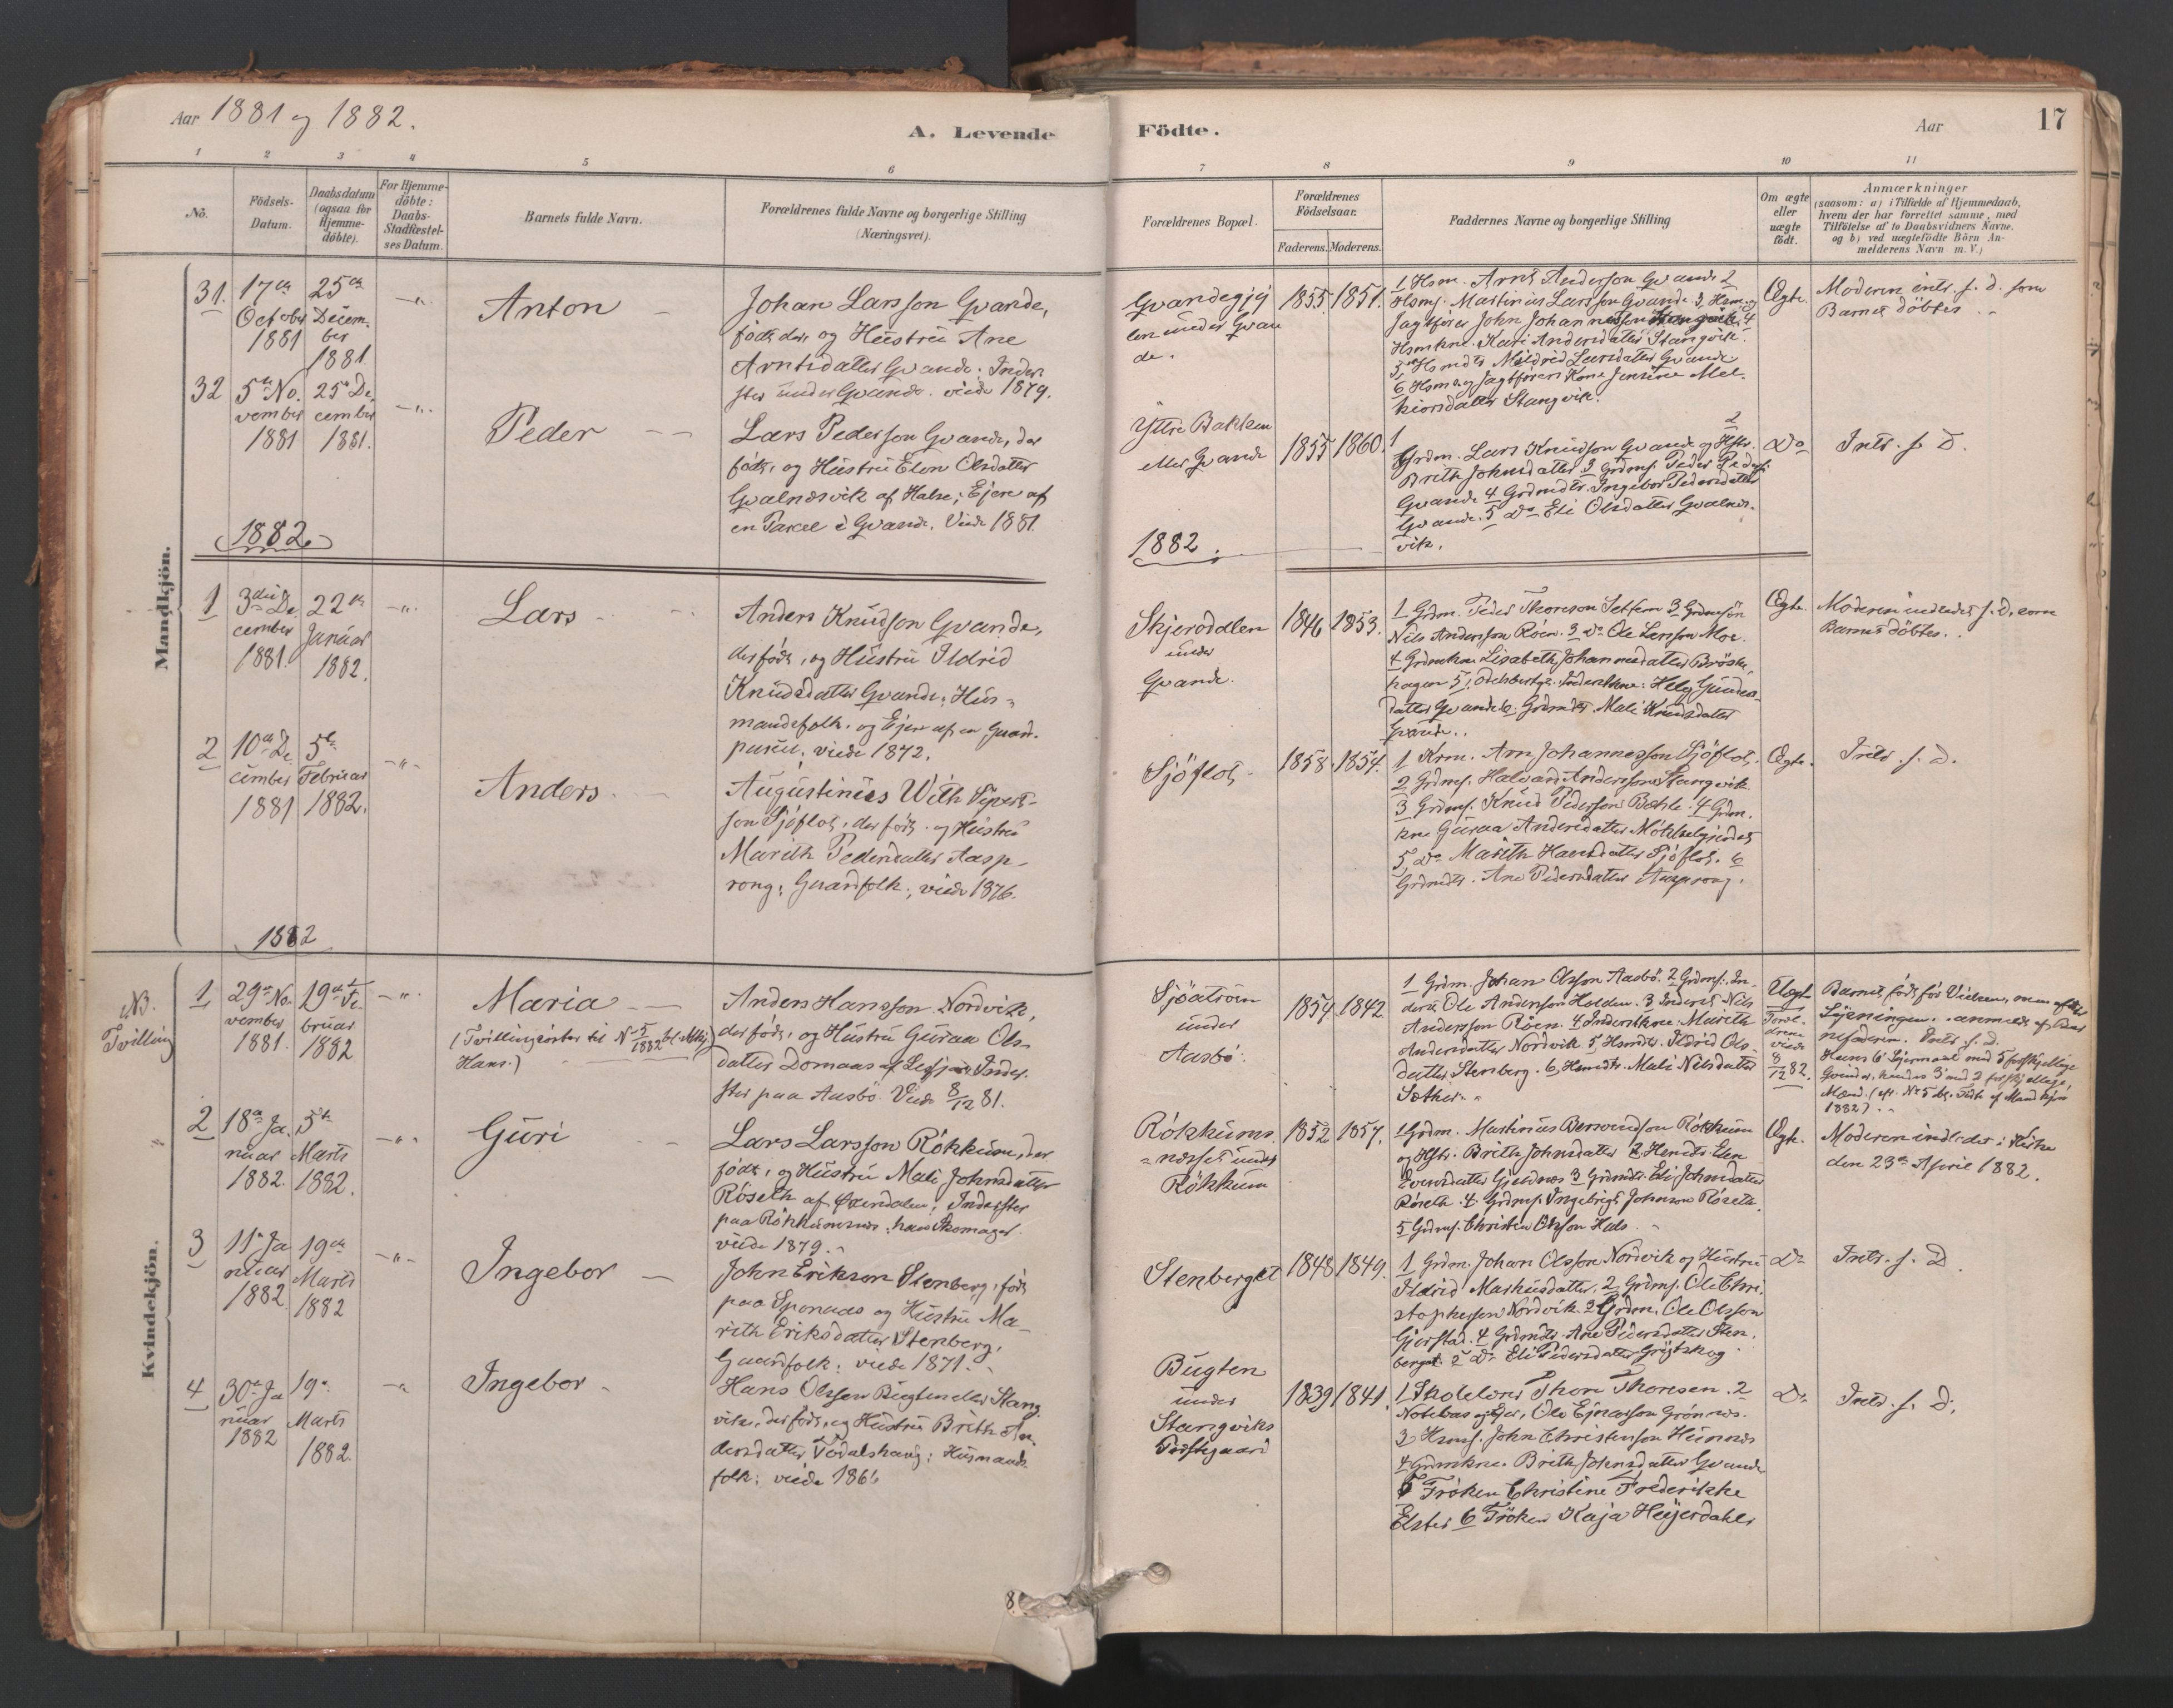 Aar 1881 og 1882.
A. Levende
Födte.
Aar
17
1
2
3
4
5
6
7
8
9
10
11
No.
Födsels-
Datum.
Daabsdatum
(ogsaa for
Hjemme-
döbte).
For Hjemme-
döbte:
Daabs-
Stadfæstel-
ses Datum.
Barnets fulde Navn.
Forældrenes fulde Navne og borgerlige Stilling
(Næringsvei).
Forældrenes Bopæl.
Forældrenes
Födselsaar.
Faderens.
Moderens.
Faddernes Navne og borgerlige Stilling
Om ægte
eller
uægte
födt.
Anmærkninger
(saasom: a) i Tilfælde af Hjemmedaab,
hvem der har forrettet samme, med
Tilföielse af to Daabsvidners Navne.
og b) ved uægtefödte Börn An-
melderens Navn m. V.)
Mandkjön.
31.
17de
October
1881
25de
Decem-
ber
1881.
Anton
Johan Larsson Qvande,
födt der, og Hustru Ane
Arntsdatter Qvande. Inder-
ster under Qvande. viede 1879.
de.
1855.
1851.
1 Hsm. Arnt Anderson Qvande 2
Hsms. Martinius Larsson Qvande 3 Hsm. og
Jagtförer John Johannesson
Hsmkne. Kari Andersdatter Stangvik.
5 Hsmdtr Mildrid Larsdatter Qvande
6 Hsm. og Jagtförers Kone Jensine Mel-
kiorsdatter Stangvik.
Ægte.
Moderen intr. s. D. som
Barnet döbtes.
32
5te No-
vember
1881
25de De-
cember
1881.
Peder
Lars Pederson Qvande, der
födt, og Hustru Elen Olsdatter
Qvalnesvik af Halse; Ejere af
en Parcel i Qvande. Viede 1881.
Yttre Bakken
eller Qvande
1855
1860.
1
2
Grdm. Lars Knudson Qvande og Hstr.
Brith Johnsdatter 3 Grdms. Peder Peders.
Qvande 4 Grdmdtr. Ingebor Pedersdatter
Qvande. 5 Do Eli Olsdatter Qvalnes-
vik.
Do
Intr. s. D.
1882
1882.
1
3die De-
cember
1881.
22de
Januar
1882.
Lars
Anders Knudson Qvande,
der födt, og Hustru Ildrid
Knudsdatter Qvande; Hus-
mandsfolk. og Ejere af en Gaard-
parcel; viede 1872.
Skjeroddlen
under
Qvande.
1846
1853.
1 Grdm. Peder Thoreson Settem 3 Grdmsön
Nils Anderson Röen. 3 Do Ole Larsson Moe.
4 Grdmkne Lisabeth Johannesdatter Bröske-
hagen
datter Qvande 6. Grdmdtr. Mali Knudsdatter
Qvande.
Ægte.
Moderen indledet s. D. som
Barnet döbtes.
2
10de De-
cember
1881
5te
Februar
1882.
Anders
Augustinius With Sivert-
son Sjöflot, der födt. og Hustru
Marith Pedersdatter Aasp-
rong; Gaardfolk; viede 1876.
Sjöflot
1858.
1854.
1 Krm. Arn Johannesson Sjöflot.
2 Grdms. Halvard Anderson Stangvik.
3 Grdms. Knud Pederson Bæhle. 4 Grdm.
kne Guraa Andersdatter Mökkelgjerdet
5 Do Marith Hansdatter Sjöflot. 6
Grdmdtr. Ane Pedersdatter Aasprong.
Ægte.
Intr. s. D.
1882
Kvindekjön.
NB.
Tvilling
1
29de No-
vember
1881.
19de Fe-
bruar
1882
Maria
(Tvillingsöster til No 5/1882 bl. Mkj.
Hans.)
Anders Hansson Nordvik,
der födt, og Hustru Guraa Ols-
datter Domaas af Lesje; Inder-
ster paa Aasbö. Viede 8/12 81.
Sjöatröen
under
Aasbö.
1854
1842
1 Grdm. Johan Olsson Aasbö. 2 Grdms. In-
derst Ole Anderson Holden. 3 Inderst Nils
Andersson Röen. 4 Inderstkne. Marith
Andersdatter Nordvik 5 Hsmdtr. Ildrid Ols-
datter Stenberg. 6 Hsmdtr. Mali Nilsdatter
Sæther.
Uægte
Foræl-
drene
viede
8/12 82.
Barnet födt för Vielsen, men efter
Lysningen. anmeldt af Bar-
nefaderen. Intr. s. D.
Hans 6' Lejermaal med 5 forskjellige
Qvinder, hendes 3' med 2 forskjellige
Mænd. (cfr. No 5 bl. Födte af Mandkjön
1882).
2
18de Ja-
nuar
1882.
5te
Marts
1882.
Guri
Lars Larsson Rökkum, der
födt, og Hustru Mali Johnsdatter
Röseth af Öxendalen; Inderster
paa Rökkumnæs; han Skomager
viede 1879.
Rökkums-
næsset under
Rökkum
1852
1857.
1 Grdm. Martinius Berndson Rökkum
og Hstr. Brith Johnsdatter 2 Hsmdtr. Elen
Evensdatter Gjeldnes 3 Grdmdtr. Eli Johnsdatter
Röseth. 4 Grdms. Ingebrigt Johnson Röseth.
5 Grdms. Christen Olsson Hals.
Ægte.
Moderen indledet i Kirke
den 23de April 1882.
3
11te Ja-
nuar
1882
19de
Marts
1882
Ingebor
John Erikson Stenberg, födt
paa Spornæs og Hustru Ma-
rith Eriksdatter Stenberg,
Gaardfolk; viede 1871.
Stenberget
1848
1849.
1 Grdm. Johan Olsson Nordvik og Hustru
Ildrid Markusdatter. 2 Grdms. Ole Chri-
stophersen Nordvik. 3 Grdm. Ole Olsson
Gjerstad. 4 Grdmdtr. Ane Pedersdatter Sten-
berget. 5 Do Eli Pedersdatter Gröjtskog.
Do
Intr. s. D.
4
30te Ja-
nuar
1882
19de
Marts
1882.
Ingebor
Hans Olsson Bugten eller Stang-
vik, der födt, og Hustru Brith An-
dersdatter Todalshaug; Husmands-
folk; viede 1866
Bugten
under
Stangviks
Præstegaard
1839
1841.
1 Skolelærer Thore Thoresen. 2
Notebas og Ejer, Ole Ejnarsson Grönnes.
3 Hsms. John Christenson Hunnes
4 Grdmkne. Brith Johnsdatter Qvande
5 Fröken Christine Frederikke
Elster 6 Fröken Kaja Heijerdahl
Do
Indl. s. D.
8